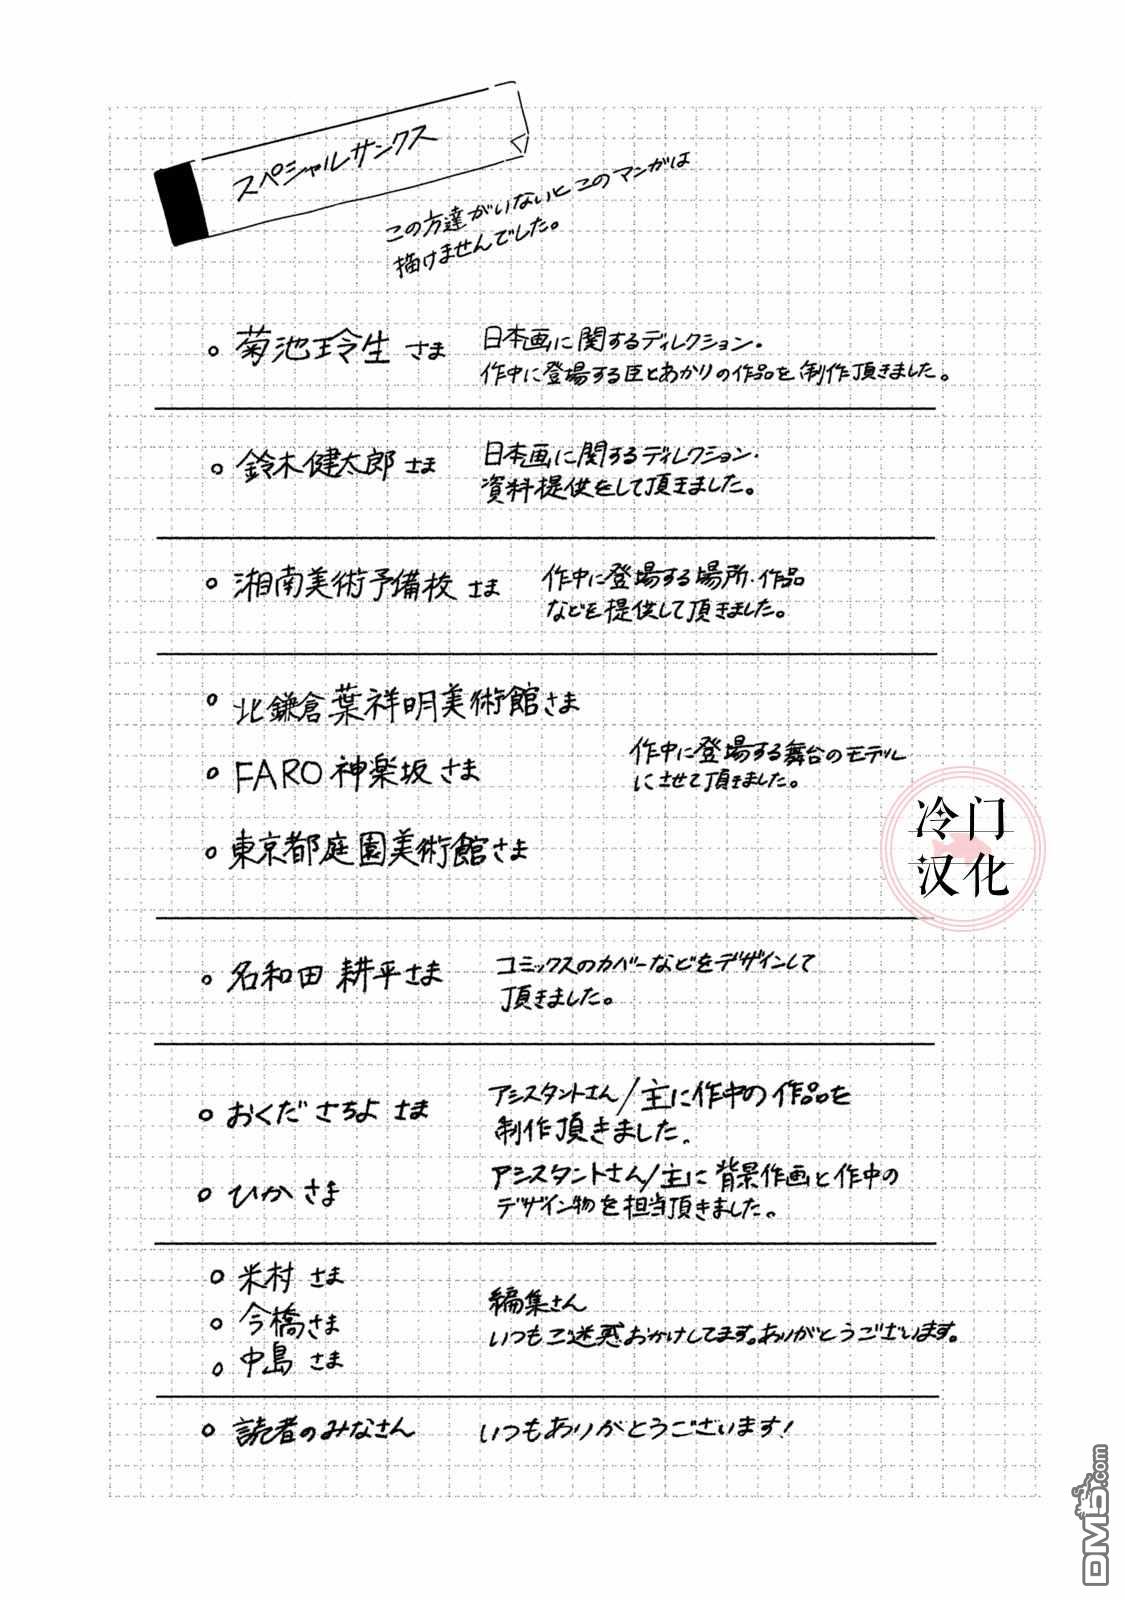 スペシャルサンクス
この方達がいないとこのマンガは
描けませんでした。
菊池玲生 さま
日本画に関するディレクション.
作中に登場する臣とあかりの作品を制作頂きました。
鈴木健太郎 さま
日本画に関するディレクション.
資料提供をして頂きました。
湘南美術予備校 さま
作中に登場する場所・作品
などを提供して頂きました。
北鎌倉葉祥明美術館さま
FARO 神楽坂 さま
東京都庭園美術館さま
作中に登場する舞台のモデル
にさせて頂きました。
冷门
汉化
名和田 耕平さま
コミックスのカバーなどをデザインして
頂きました。
おくだ さちよ さま
アシスタントさん/主に作中の作品を
制作頂きました.
ひか さま
アシスタントさん/主に背景作画と作中の
デザイン物を担当頂きました。
米村 さま
今橋さま
中島 さま
編集さん
いつもご迷惑おかけしてます。ありがとうございます。
読者のみなさん
いつもありがとうございます!
DM5.com